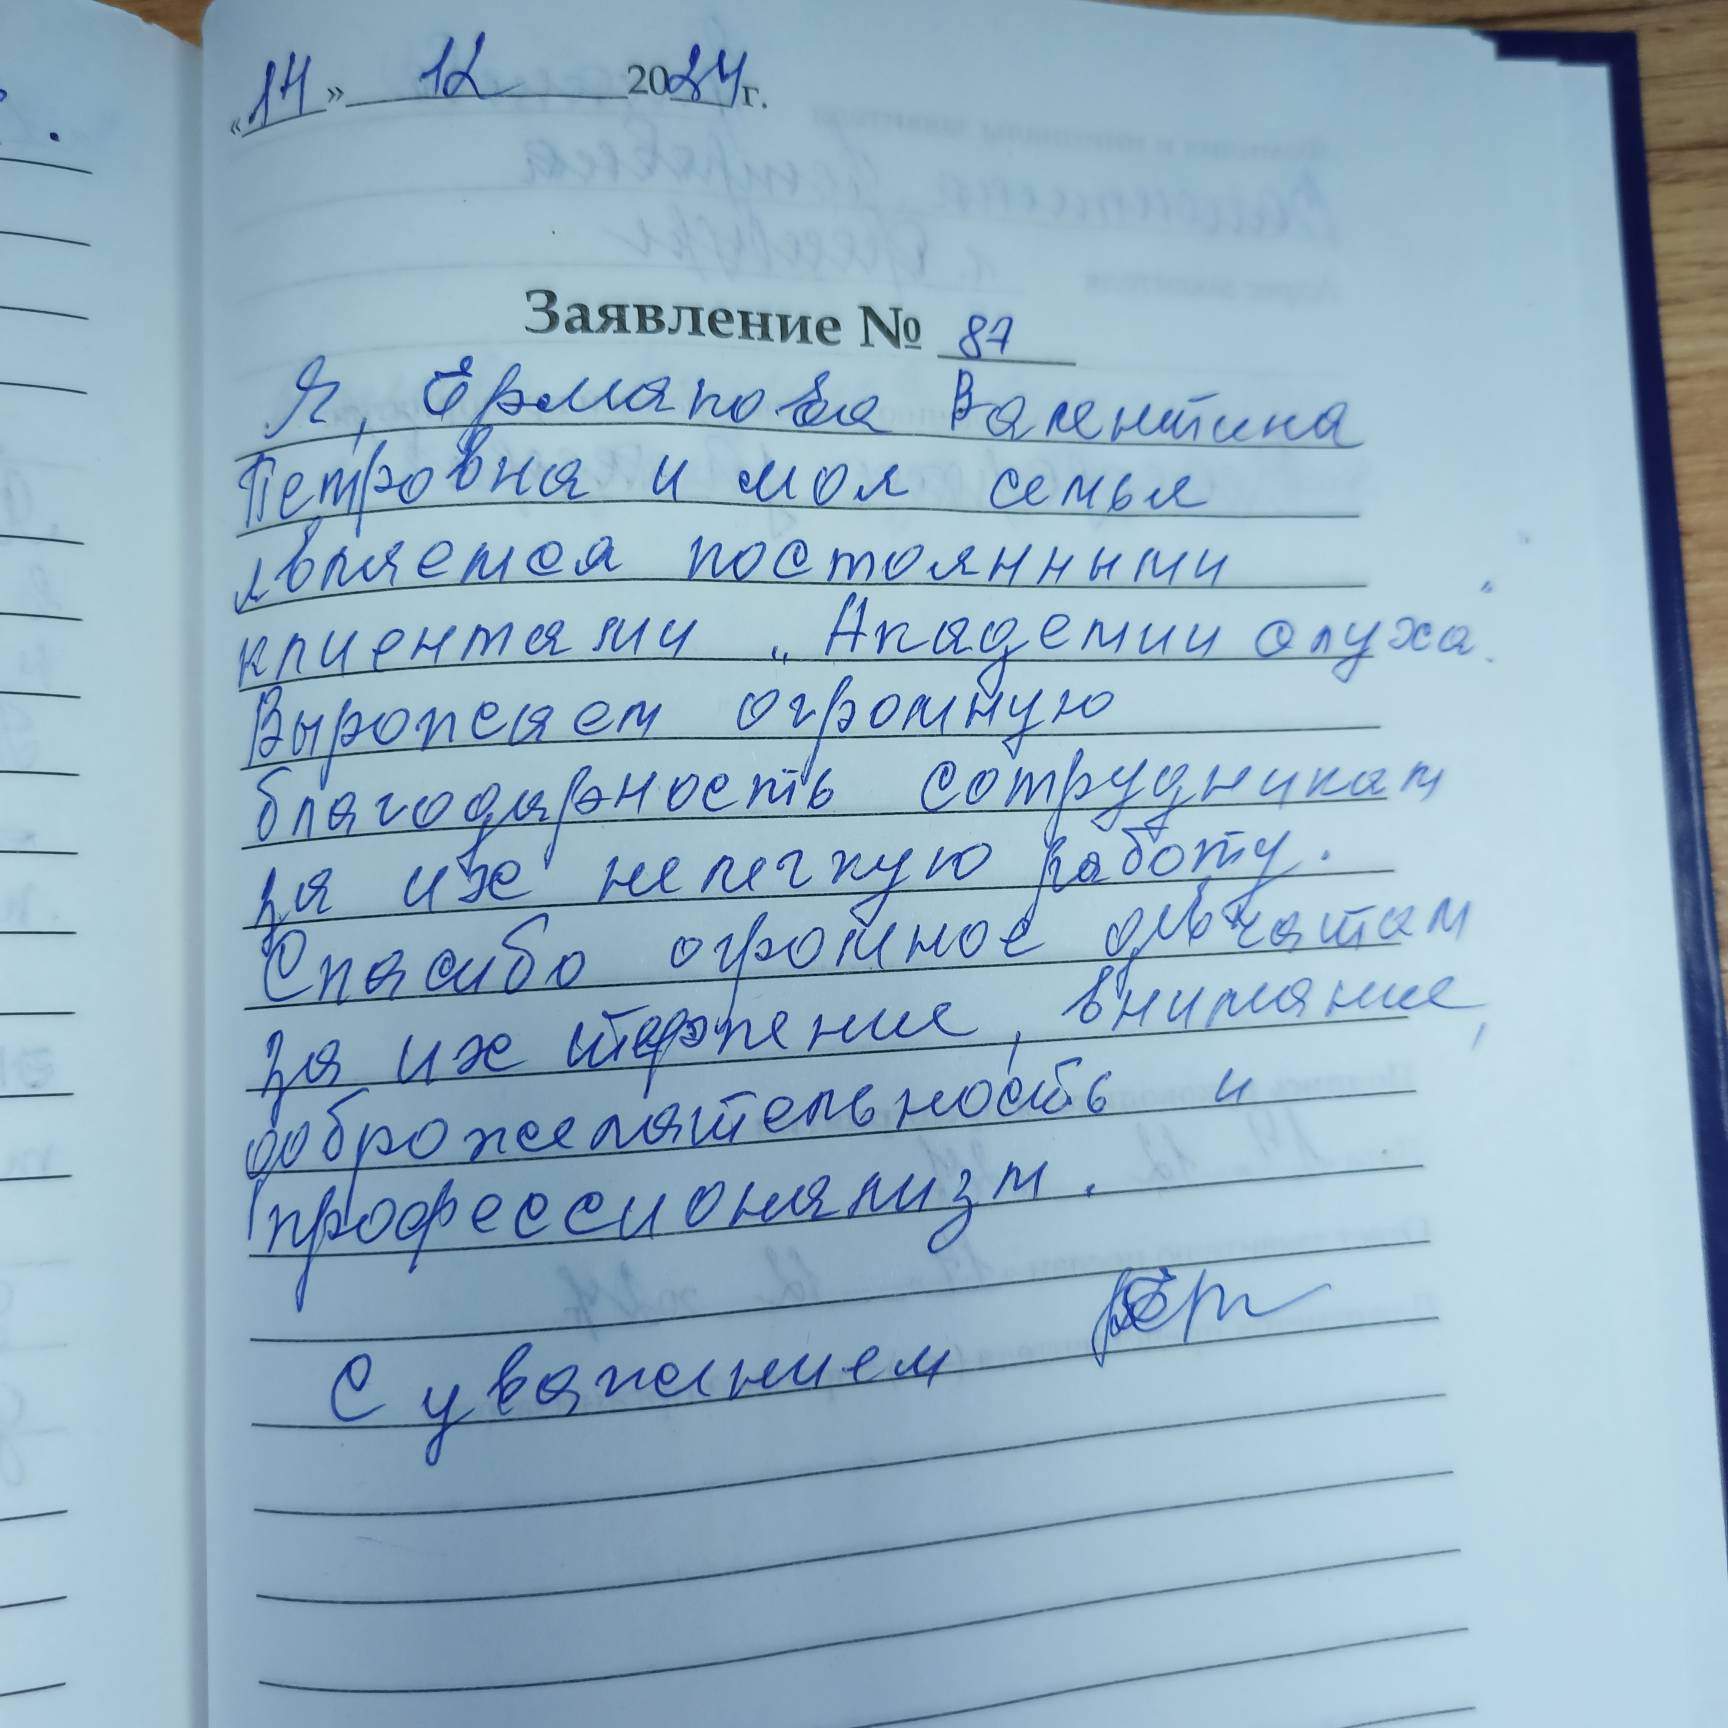 «14» 12 2024 г.
Заявление № 87
Я, Ермакова Валентина
Петровна и моя семья
является постоянными
клиентами „Академии слуха"
Выражаем огромную
благодарность сотрудникам
за их нелегкую работу.
Спасибо огромное девчатам
за их терпение, внимание,
доброжелательность и
профессионализм.
С уважением